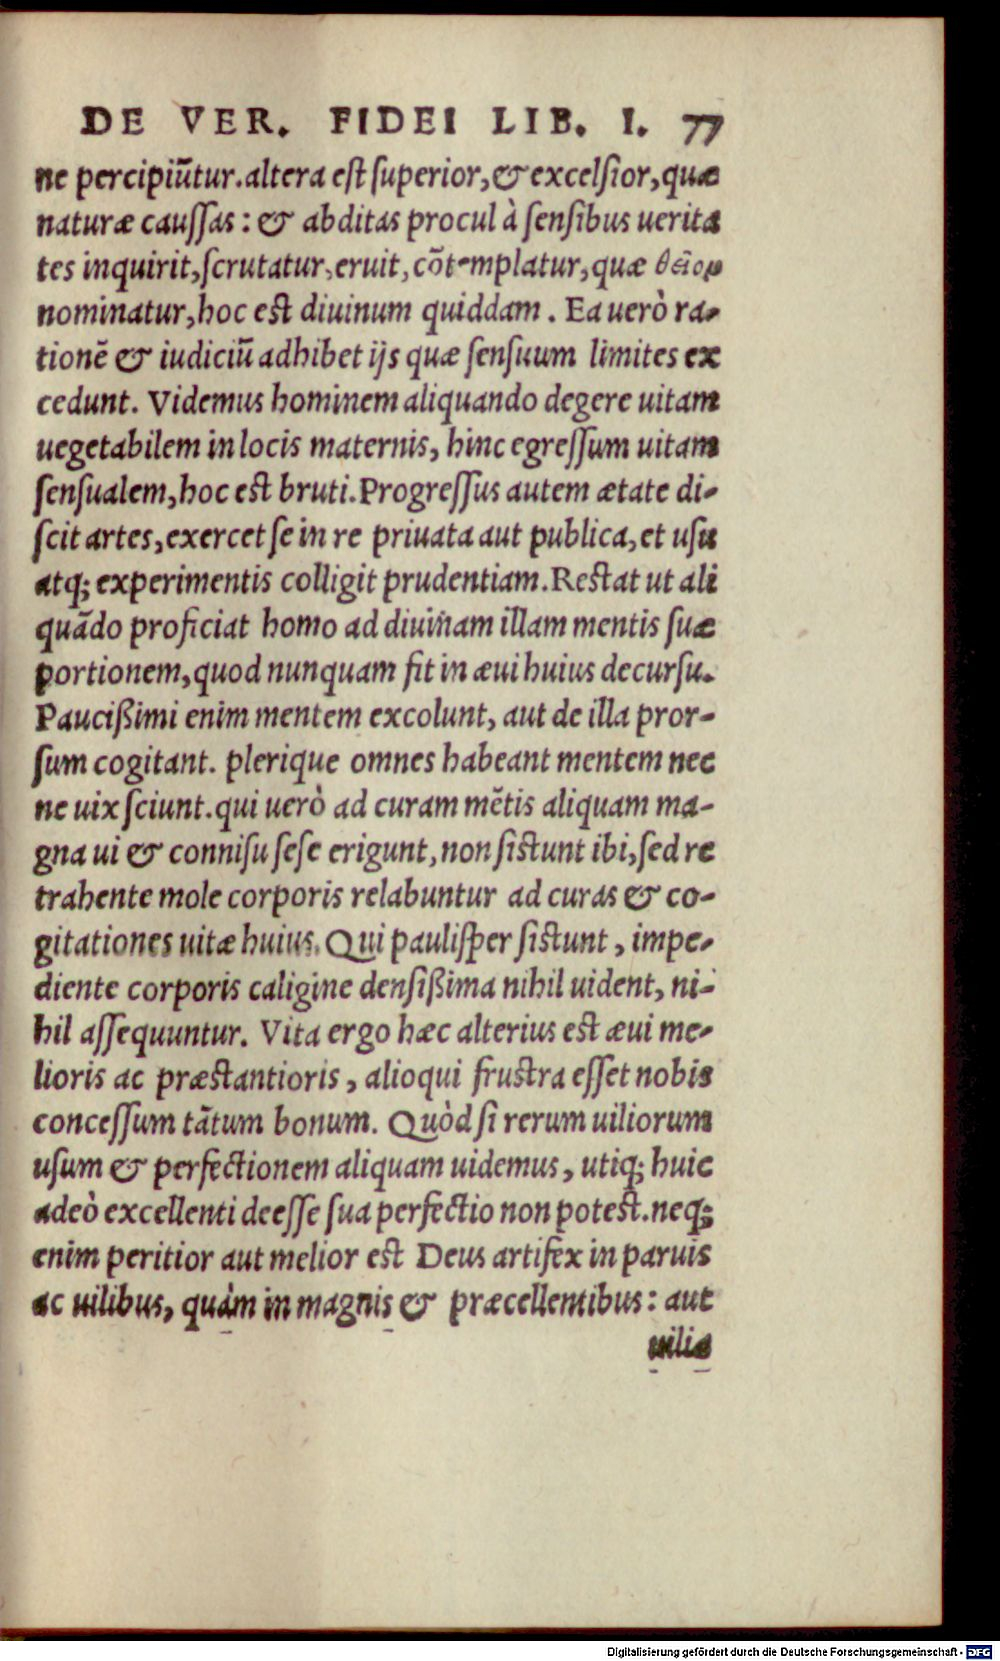 DE VER. FIDEI LIB. I. 77
ne percipiũtur. altera est superior, & excelsior, quæ
naturæ caussas: & abditas procul à sensibus uerita
tes inquirit, scrutatur, eruit, cõtemplatur, quæ θεῖομ
nominatur, hoc est diuinum quiddam. Ea uerò ra-
tionẽ & iudiciũ adhibet ijs quæ sensuum limites ex
cedunt. Videmus hominem aliquando degere uitam
uegetabilem in locis maternis, hinc egressum uitam
sensualem, hoc est bruti. Progressus autem ætate di-
scit artes, exercet se in re priuata aut publica, et usu
atq; experimentis colligit prudentiam. Restat ut ali
quãdo proficiat homo ad diuinam illam mentis suæ
portionem, quod nunquam fit in æui huius decursu.
Paucißimi enim mentem excolunt, aut de illa pror-
sum cogitant. plerique omnes habeant mentem nec
ne uix sciunt. qui uerò ad curam mẽtis aliquam ma-
gna ui & connisu sese erigunt, non sistunt ibi, sed re
trahente mole corporis relabuntur ad curas & co-
gitationes uitæ huius. Qui paulisper sistunt, impe-
diente corporis caligine densißima nihil uident, ni-
hil assequuntur. Vita ergo hæc alterius est æui me-
lioris ac præstantioris, alioqui frustra esset nobis
concessum tãtum bonum. Quòd si rerum uiliorum
usum & perfectionem aliquam uidemus, utiq; huic
adeò excellenti deesse sua perfectio non potest. neq;
enim peritior aut melior est Deus artifex in paruis
ac uilibus, quàm in magnis & præcellentibus: aut
uilia
Digitalisierung gefördert durch die Deutsche Forschungsgemeinschaft - DFG